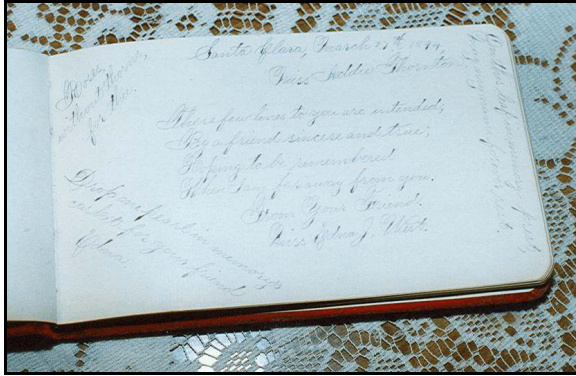 Santa Clara, March 17th 1894,
Miss Addie Thornton:
These few lines to you are intended,
By a friend sincere and true;
Hoping to be remembered
When I am far away from you.
From Your Friend.
Miss Edna J. West.
Roses,
without thorns,
for thee.
Drop one pearl in memory's
casket for your friend
Edna